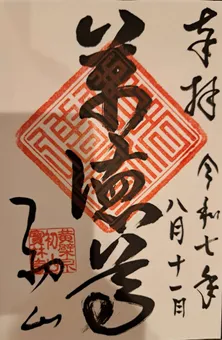 奉拝
令和七年
八月十一日
萬徳尊
初山
黄檗宗
初山
寶林寺